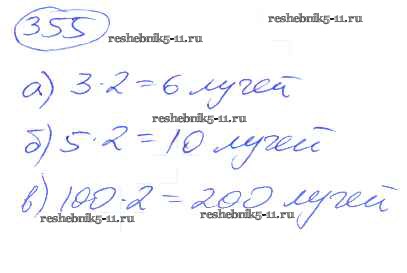 355
reshebnik5-11.ru
reshebnik5-11.ru
а) 3·2=6 лучей
reshebnik5-11.ru
б) 5·2=10 лучей
в) 100·2=200 лучей
reshebnik5-11.ru
reshebnik5-11.ru